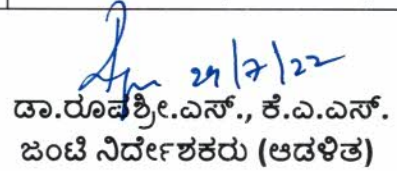 29/7/22
ಡಾ.ರೂಪಶ್ರೀ.ಎಸ್., ಕೆ.ಎ.ಎಸ್.
ಜಂಟಿ ನಿರ್ದೇಶಕರು (ಆಡಳಿತ)